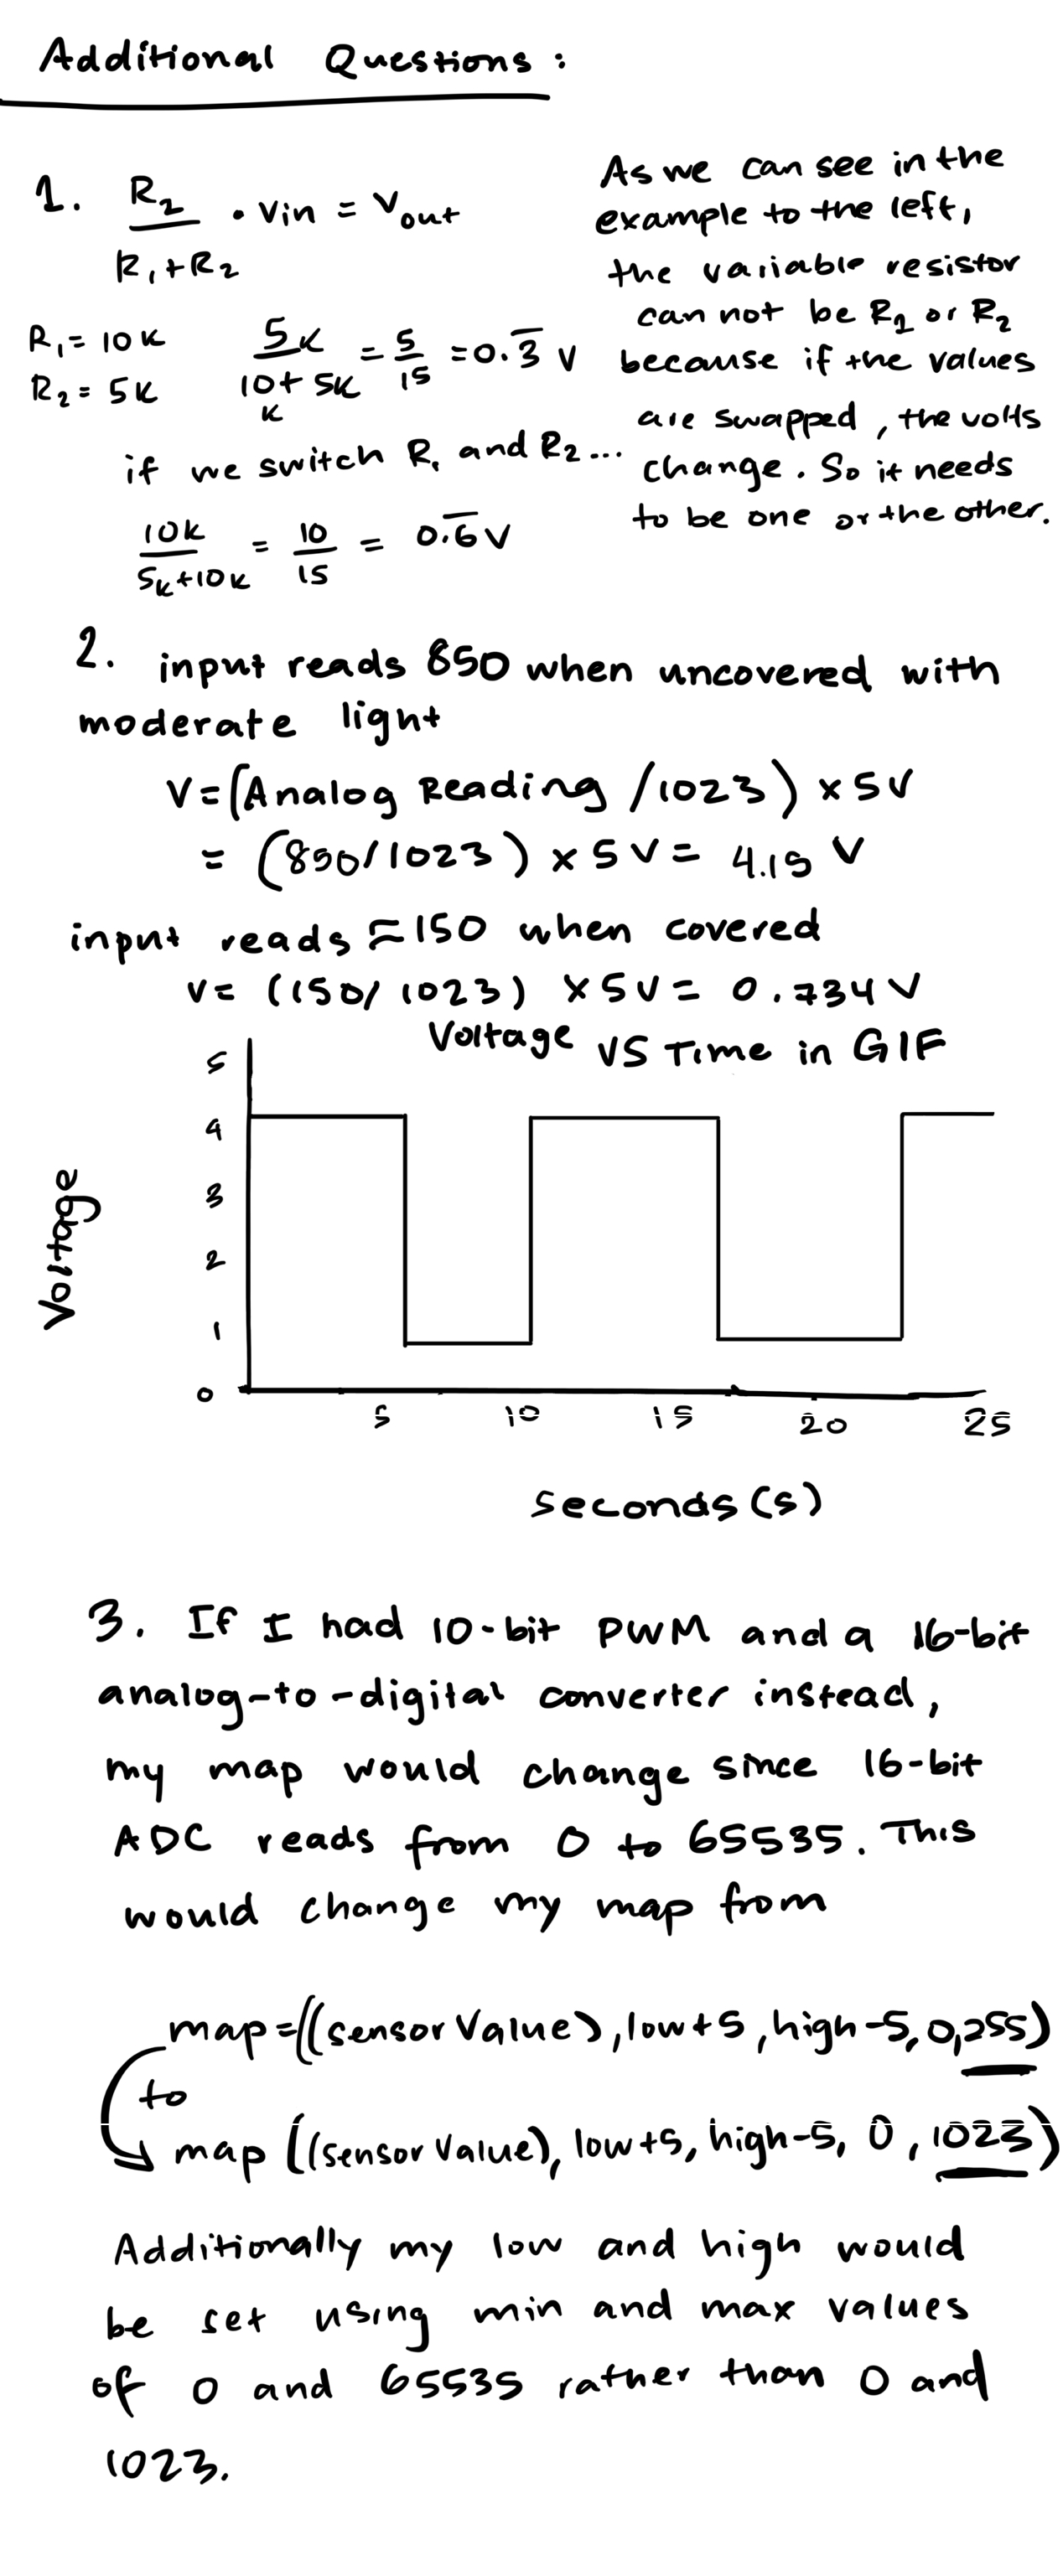 Additional Questions:
1. R₂ / (R₁+R₂) · Vin = Vout
R₁ = 10K
R₂ = 5K
5K / (10K + 5K) = 5/15 = 0.3̅ V
if we switch R₁ and R₂...
10K / (5K+10K) = 10/15 = 0.6̅ V
As we can see in the
example to the left,
the variable resistor
can not be R₁ or R₂
because if the values
are swapped, the volts
change. So it needs
to be one or the other.
2. input reads 850 when uncovered with
moderate light
V=(Analog Reading /1023) x 5V
= (850/1023) x 5V = 4.15 V
input reads ≈150 when covered
V= (150/1023) x5V= 0.734V
Voltage vs Time in GIF
Voltage
5
4
3
2
1
0
5 10 15 20 25
seconds (s)
3. If I had 10-bit PWM and a 16-bit
analog-to-digital converter instead,
my map would change since 16-bit
ADC reads from 0 to 65535. This
would change my map from
map=((sensorValue), low+5, high-5, 0, 255)
to
map ((sensorValue), low+5, high-5, 0, 1023)
Additionally my low and high would
be set using min and max values
of 0 and 65535 rather than 0 and
1023.